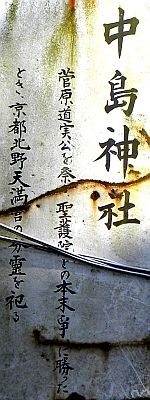 中島神社
菅原道実公を祭る聖護院との本末争に勝った
とき、京都北野天満宮の分霊を祀る